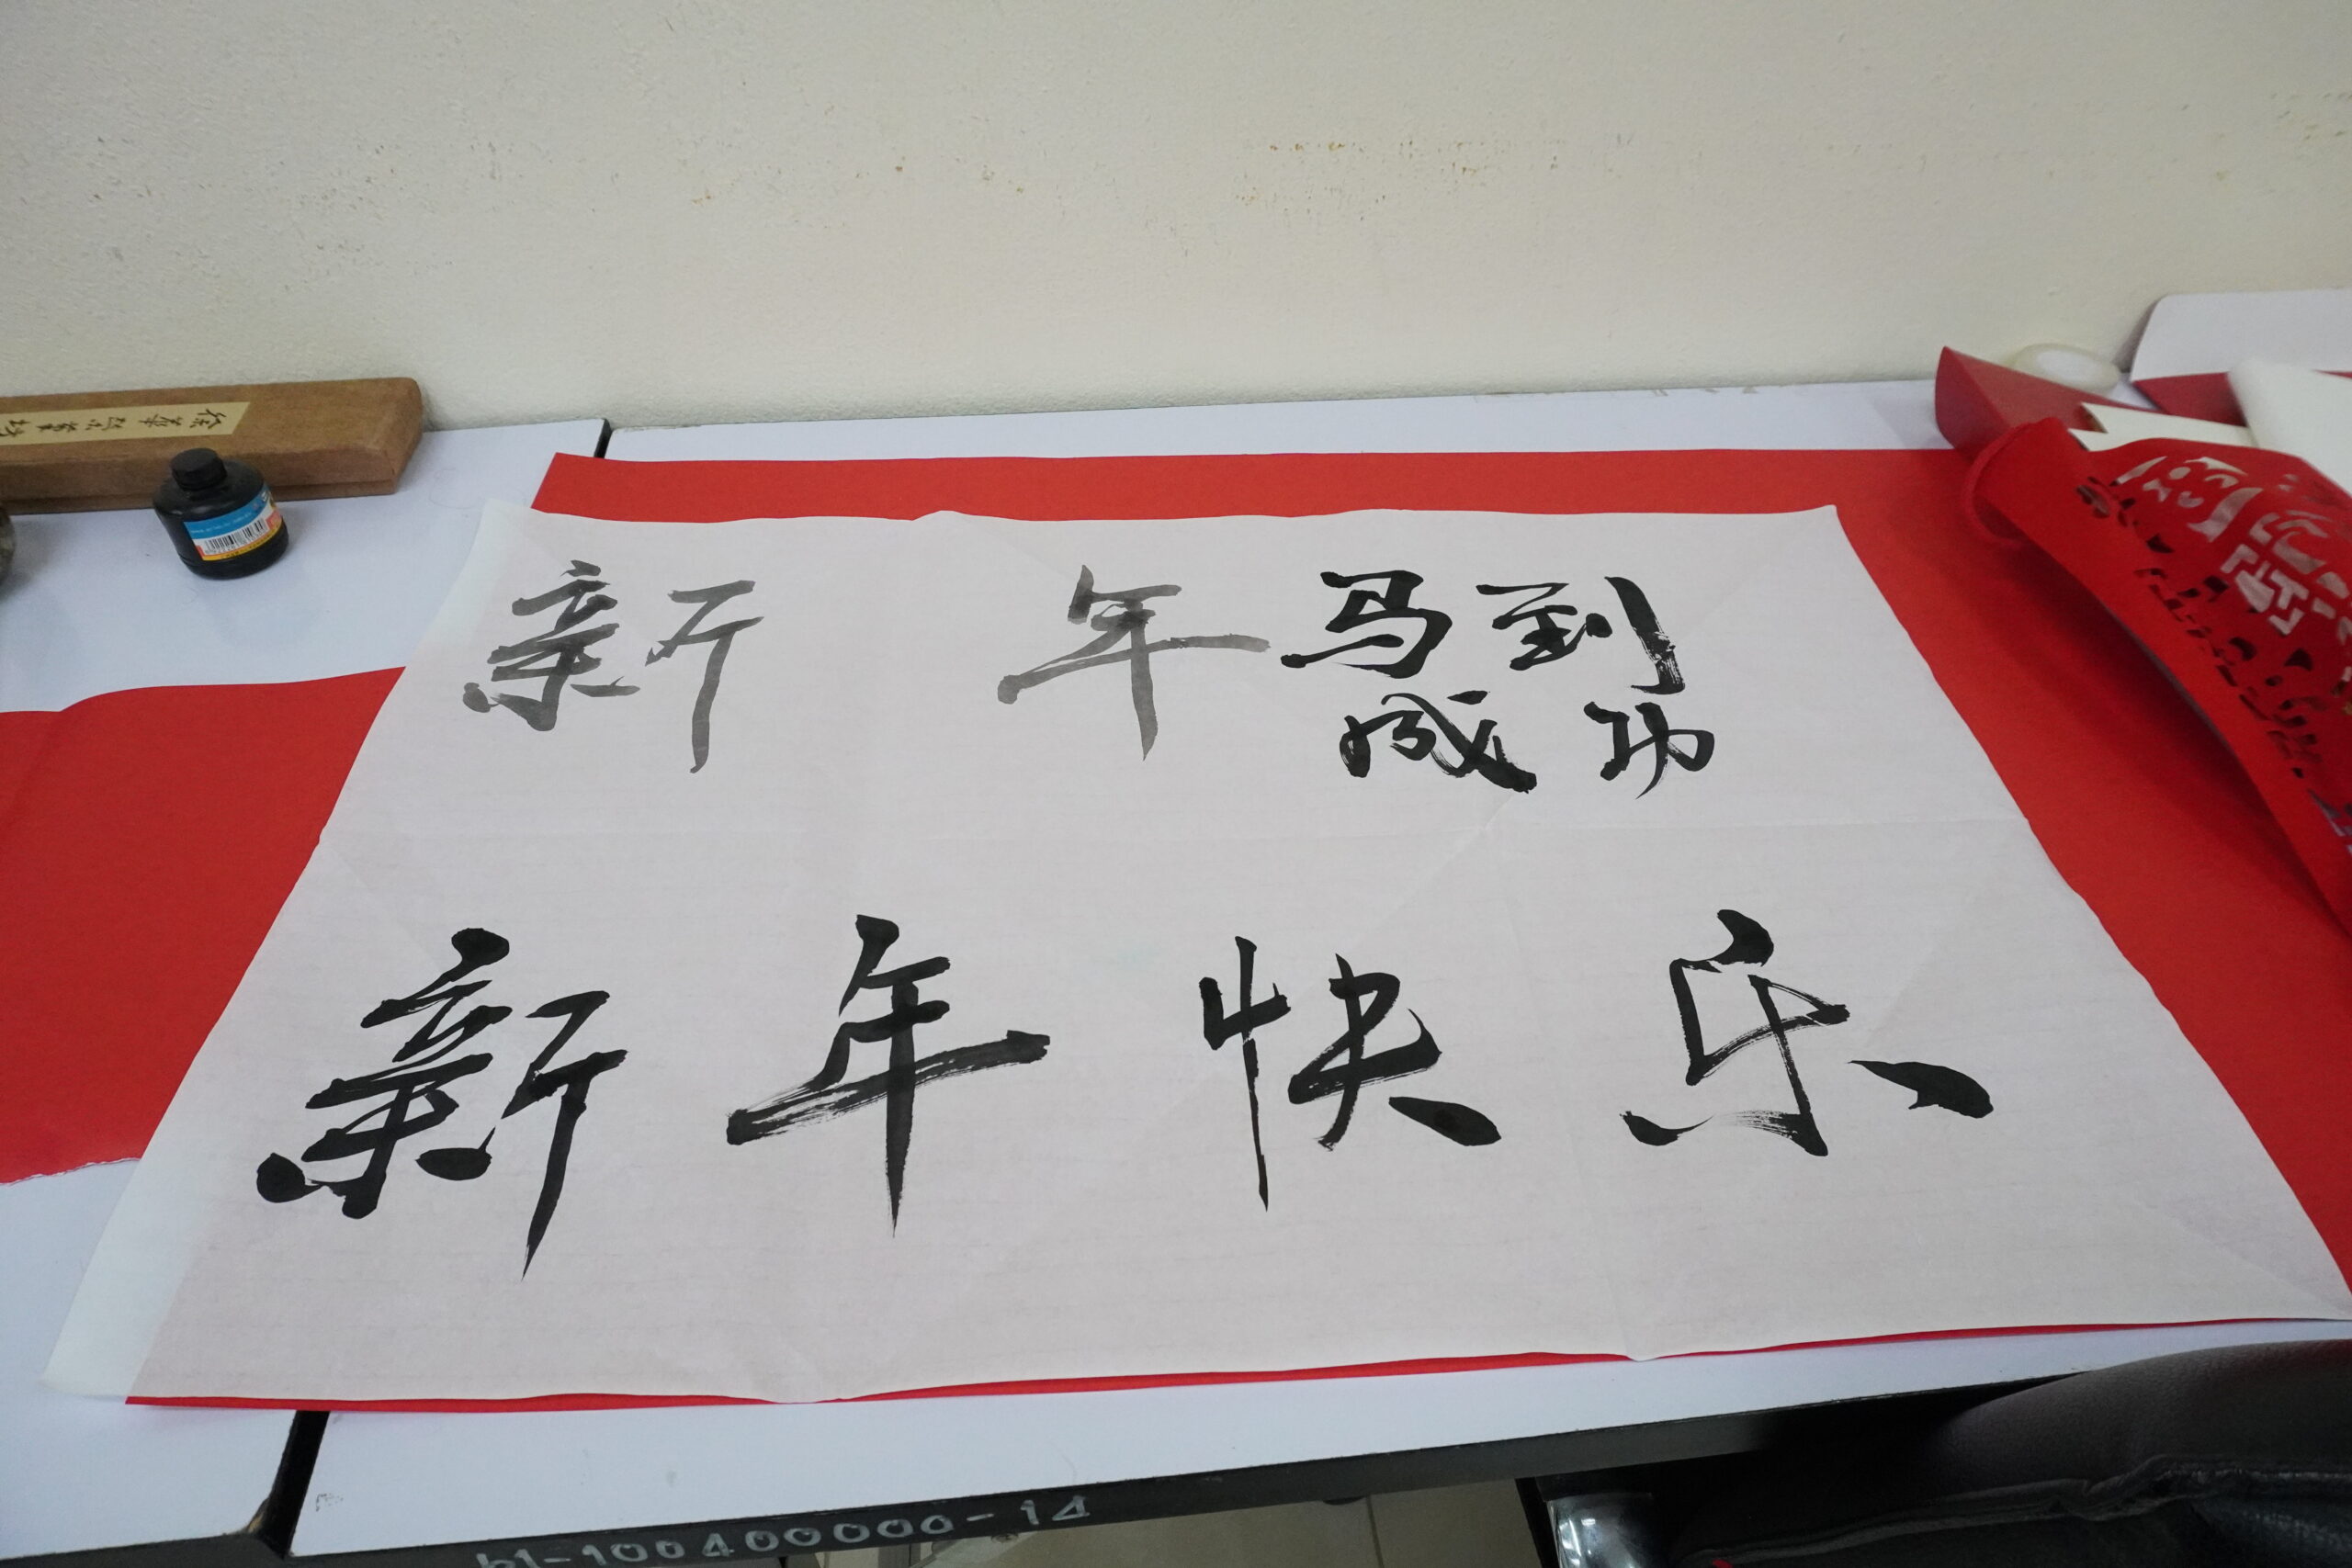 新 年 马到
成功
新年快乐
h1-100400006-14